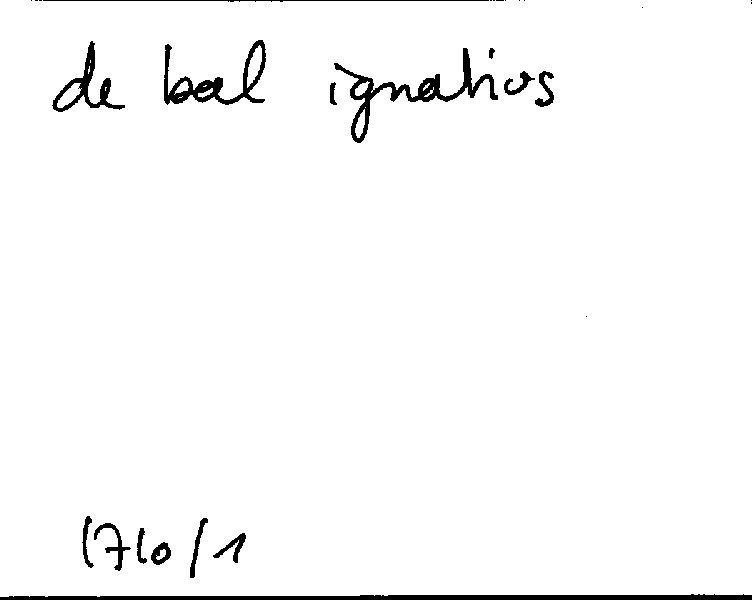 de bal ignatius
1710/1